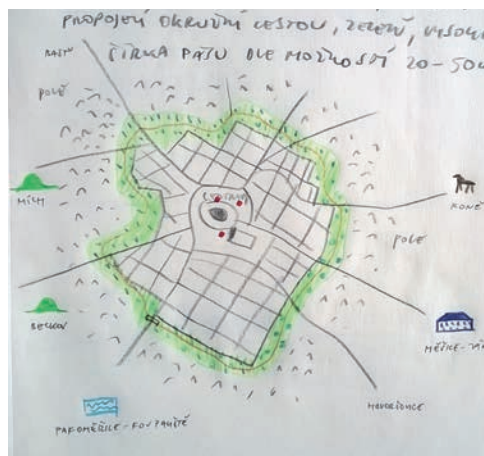 PROPOJENÍ OKRUŽNÍ CESTOU, ZELENÍ,
ŠÍŘKA PÁSU DLE MOŽNOSTÍ 20-50
POLE
MÍCH
KONĚ
POLE
BECKOV
MĚŠICE-
HOVORČOVICE
PAKOMĚŘICE-KOUPALIŠTĚ